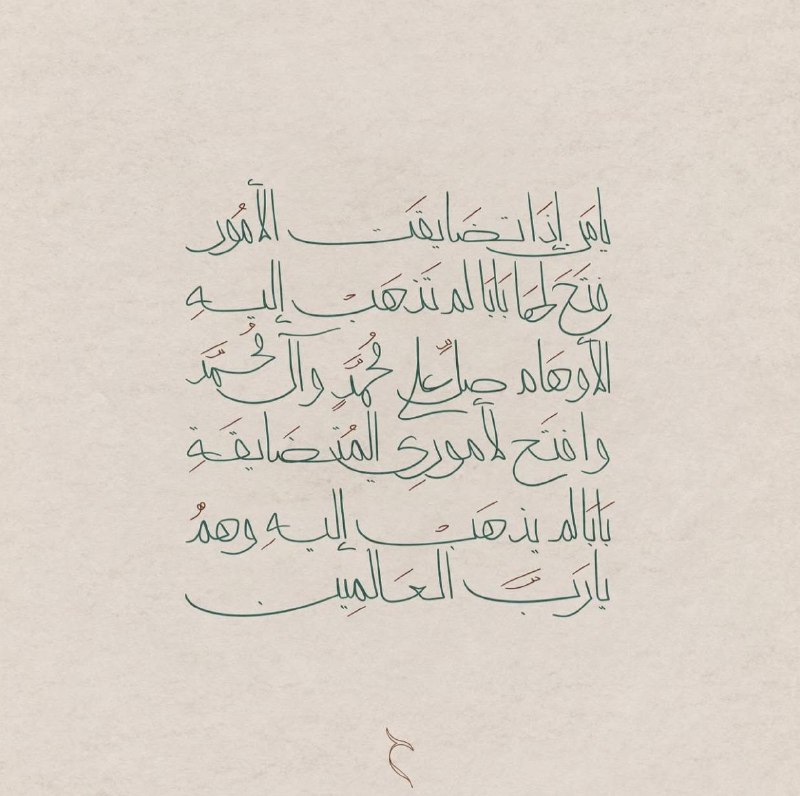 يامَن إِذَا تضَايقَت الأمُور
فتَحَ لهَا بَابَا لم تَذهَبْ إليهِ
الأوهَام صلِّ على مُحمَّدٍ وآل مُحمَّد
وافتَح لأمورِي المُتضَايقَةِ
بَابَا لم يذهَبْ إليهِ وهمُ
يارَبَّ العَالَمِين